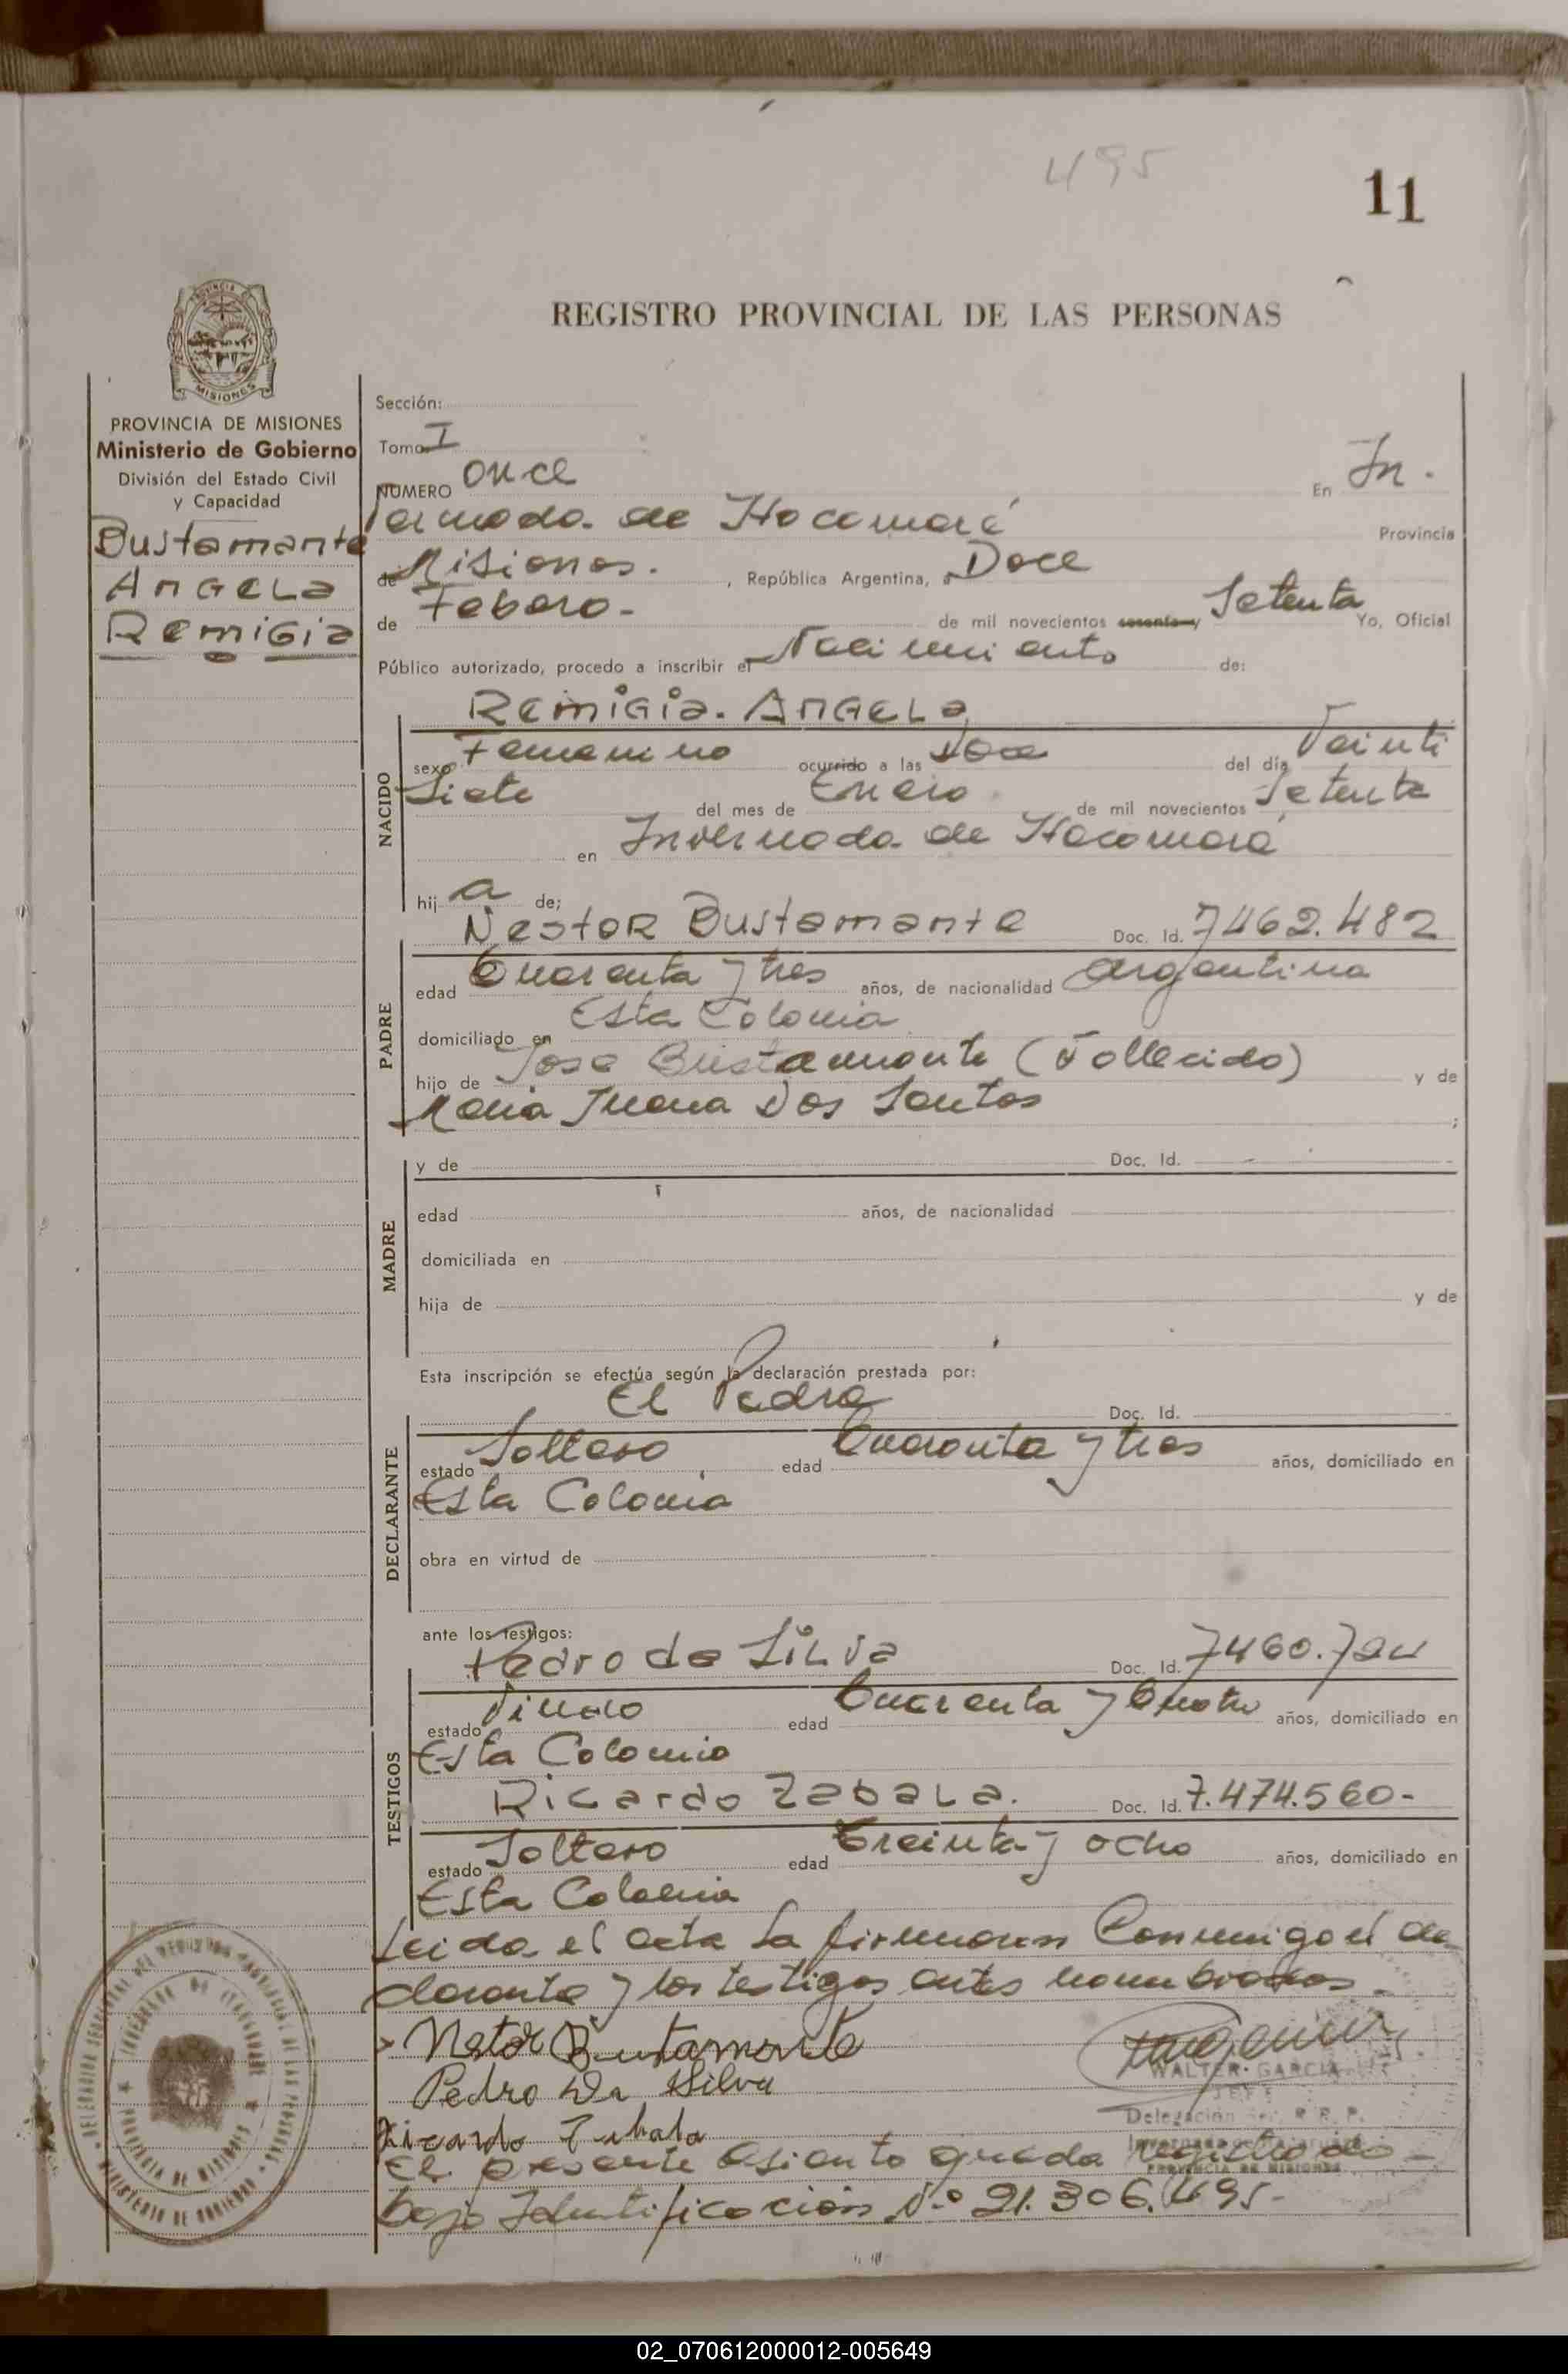 495
11
REGISTRO PROVINCIAL DE LAS PERSONAS
PROVINCIA DE MISIONES
Ministerio de Gobierno
División del Estado Civil
y Capacidad
Bustamante
Angela
Remigia
Sección:
Tomo I
NUMERO once En In.
vernada de Itacuaré Provincia
de Misiones. , República Argentina, a Doce
de Febrero - de mil novecientos sesenta y Setenta Yo, Oficial
Público autorizado, procedo a inscribir el Nacimiento de:
NACIDO
Remigia. Angela
sexo Femenino ocurrido a las Doce del día Veinti
Siete del mes de Enero de mil novecientos Setenta
en Invernada de Itacuaré
hij a de;
PADRE
Nestor Bustamante Doc. Id. 7462.482
edad Cuarenta y tres años, de nacionalidad Argentina
domiciliado en Esta Colonia
hijo de Jose Bustamante (Fallecido) y de
Maria Juana Dos Santos ;
MADRE
y de Doc. Id.
edad años, de nacionalidad
domiciliada en
hija de y de
Esta inscripción se efectúa según la declaración prestada por:
DECLARANTE
El Padre Doc. Id.
estado Soltero edad Cuarenta y tres años, domiciliado en
Esta Colonia
obra en virtud de
ante los testigos:
TESTIGOS
Pedro da Silva Doc. Id. 7460.724
estado Viudo edad Cuarenta y Cuatro años, domiciliado en
Esta Colonia
Ricardo Zabala. Doc. Id. 7.474.560-
estado Soltero edad Treinta y ocho años, domiciliado en
Esta Colonia
Leida el acta la firmaron Conmigo el de
clarante y los testigos antes nombrados
Nestor Bustamante
WALTER GARCIA
JEFE
Pedro Da Silva
Delegación R. R. P.
Ricardo Zabala
PROVINCIA DE MISIONES
El presente asiento queda registrado
bajo Identificación N.o 21.306.495-
02_070612000012-005649